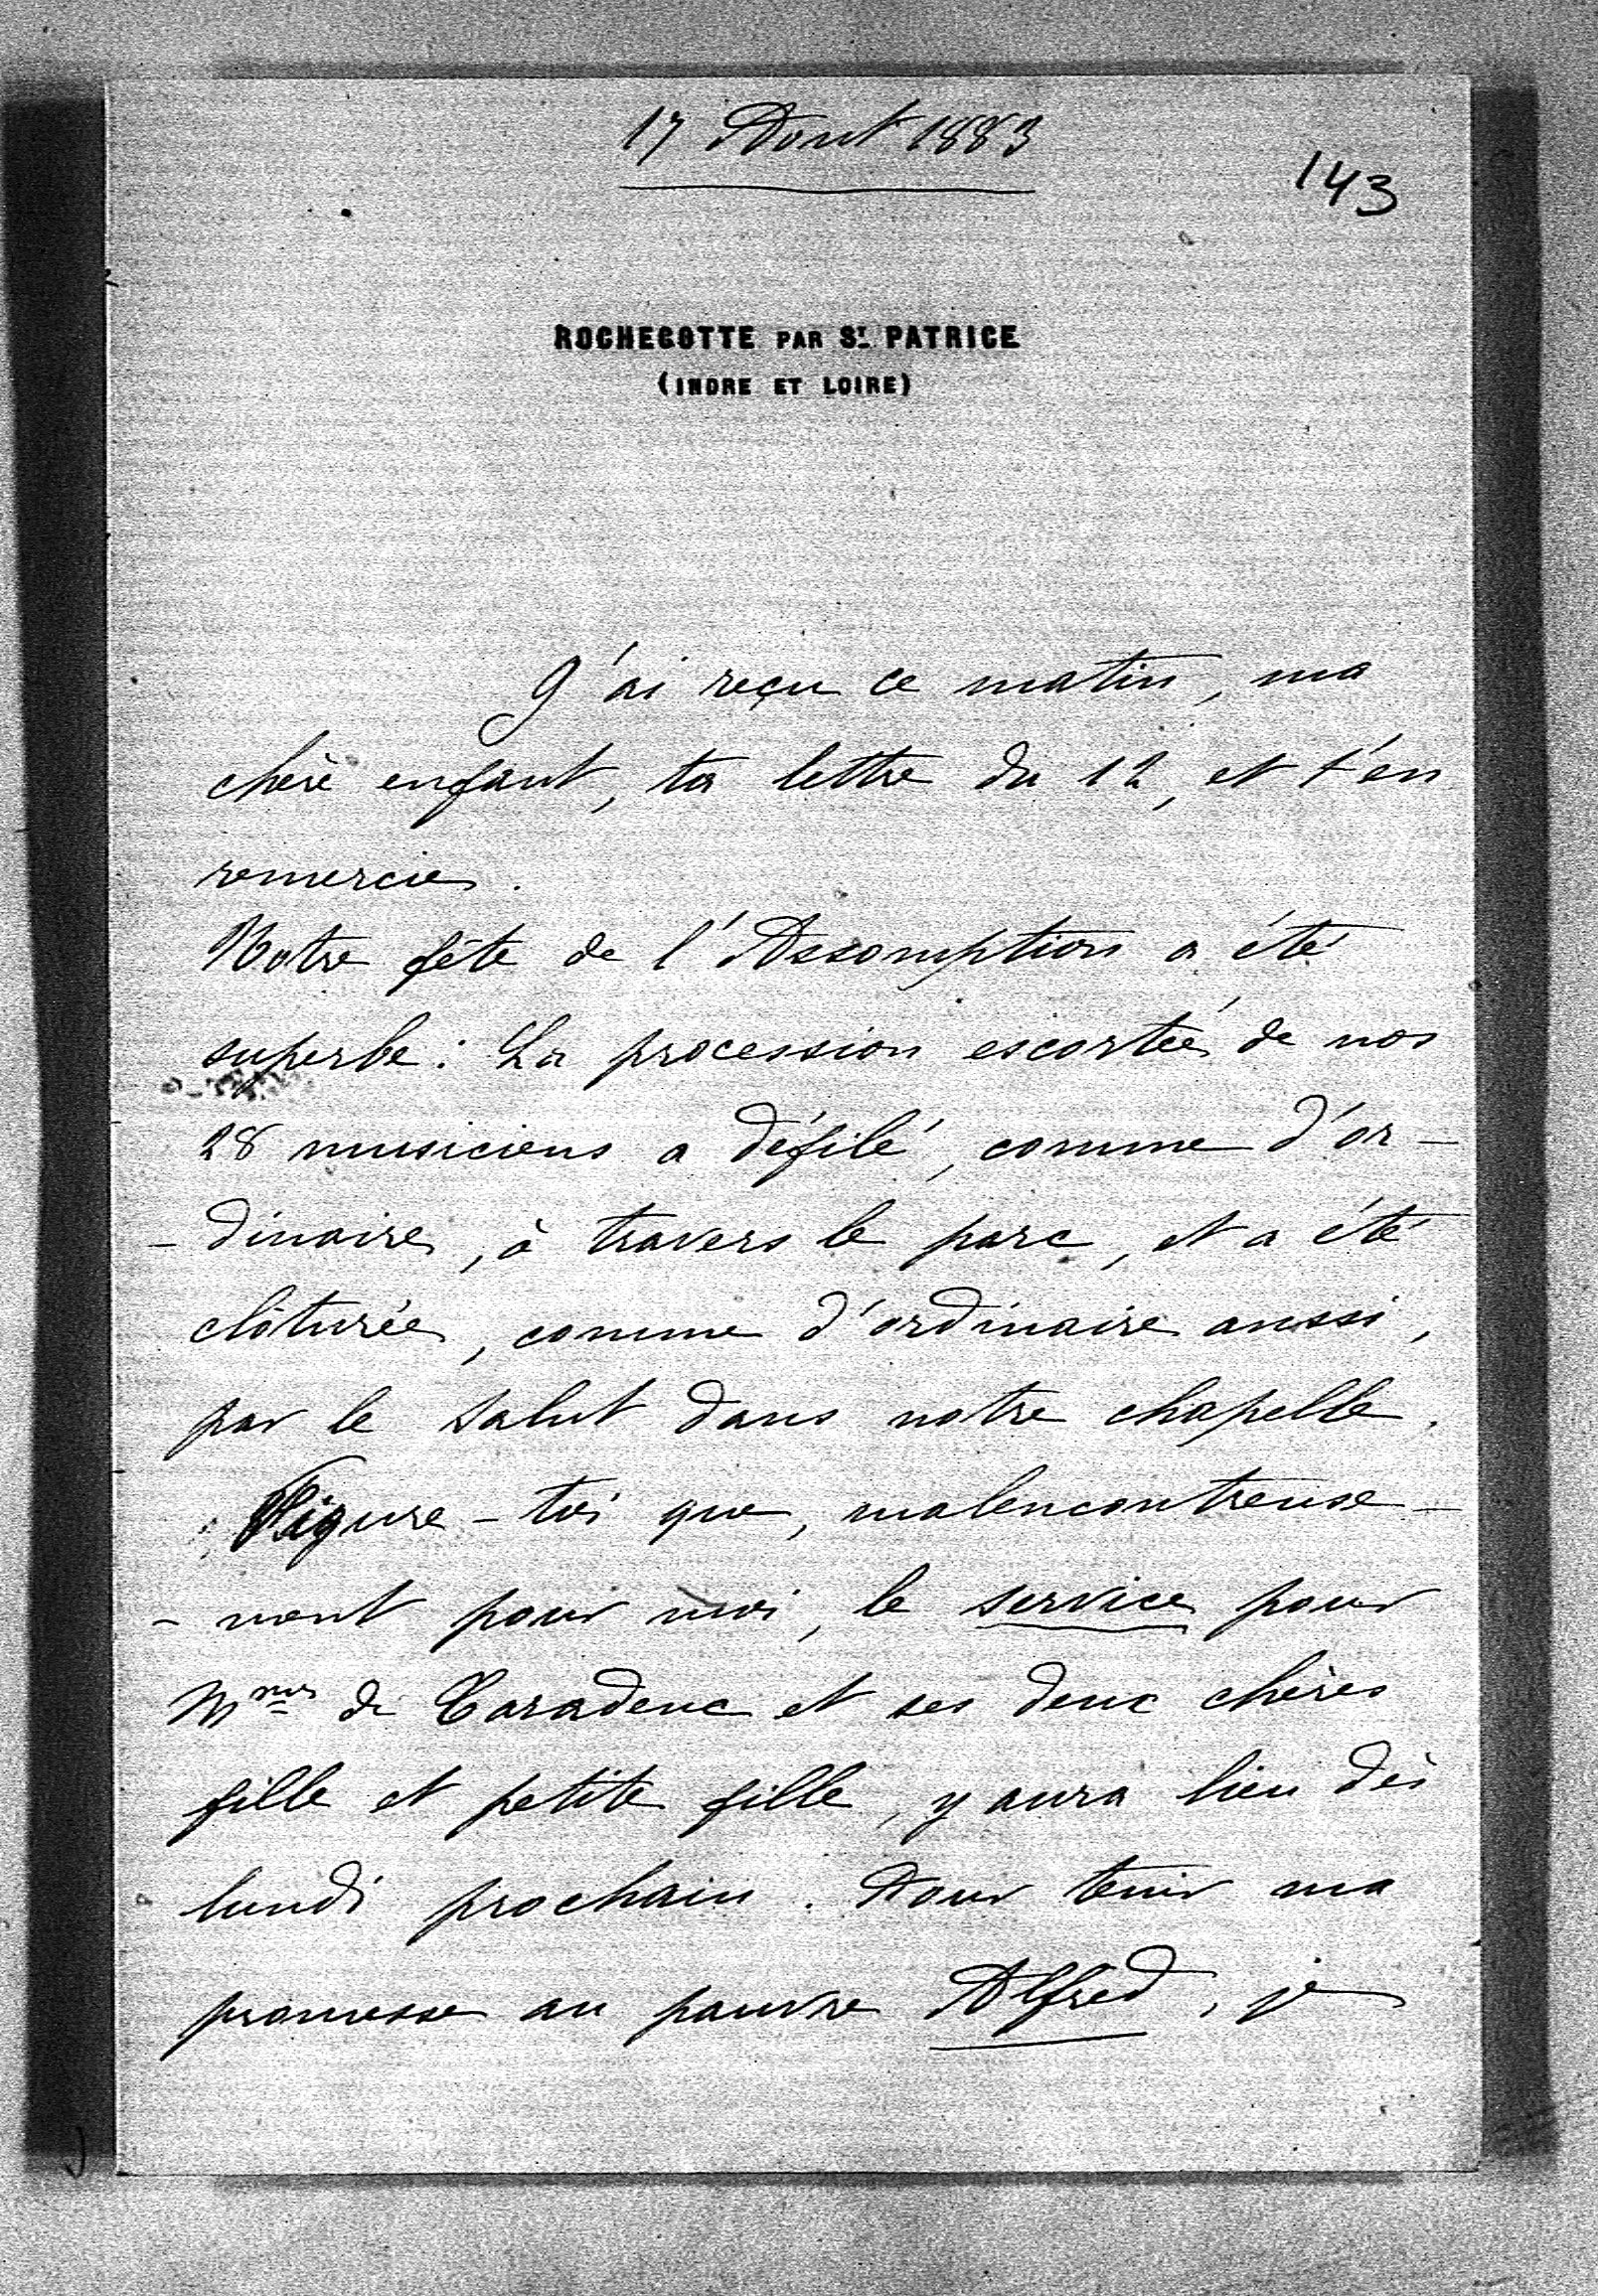 17 Aout 1883
143
ROCHECOTTE PAR ST. PATRICE
(INDRE ET LOIRE)
J'ai reçu ce matin, ma
chère enfant, ta lettre du 12, et t'en
remercie.
Notre fête de l'Assomption a été
superbe : La procession escortée de nos
28 musiciens a défilé, comme d'or-
-dinaire, à travers le parc, et a été
clôturée, comme d'ordinaire aussi,
par le salut dans notre chapelle.
Figure-toi que, malencontreuse-
-ment pour moi, le service pour
Mme de Caradeuc et ses deux chères
fille et petite fille, y aura lieu dès
lundi prochain. Pour tenir ma
promesse au pauvre Alfred, je